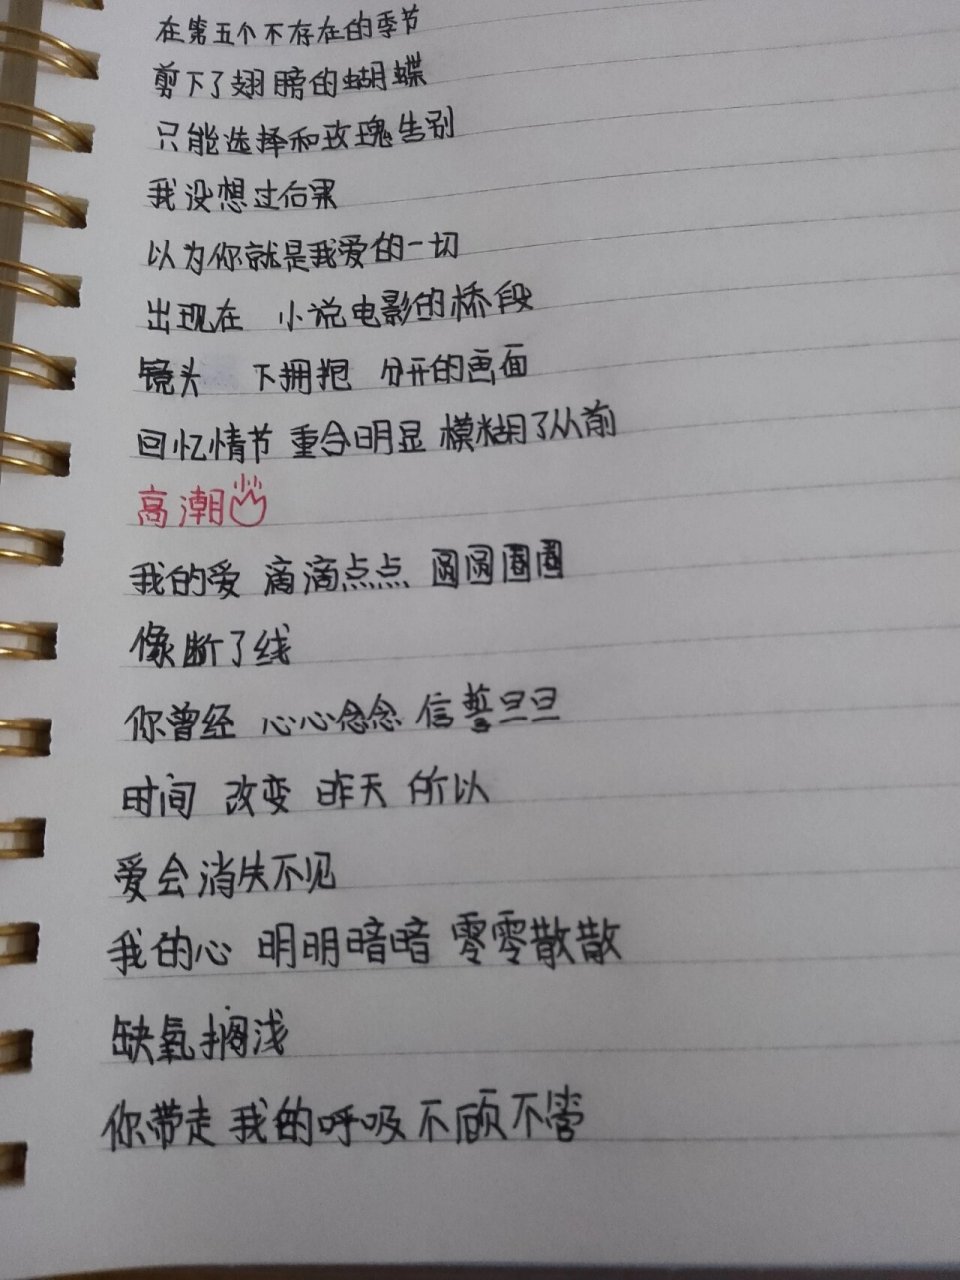 在第五个不存在的季节
剪下了翅膀的蝴蝶
只能选择和玫瑰告别
我没想过后果
以为你就是我爱的一切
出现在 小说电影的桥段
镜头 下拥抱 分开的画面
回忆情节 重合明显 模糊了从前
高潮
我的爱 滴滴点点 圆圆圈圈
像断了线
你曾经 心心念念 信誓旦旦
时间 改变 昨天 所以
爱会消失不见
我的心 明明暗暗 零零散散
缺氧搁浅
你带走 我的呼吸 不顾不管